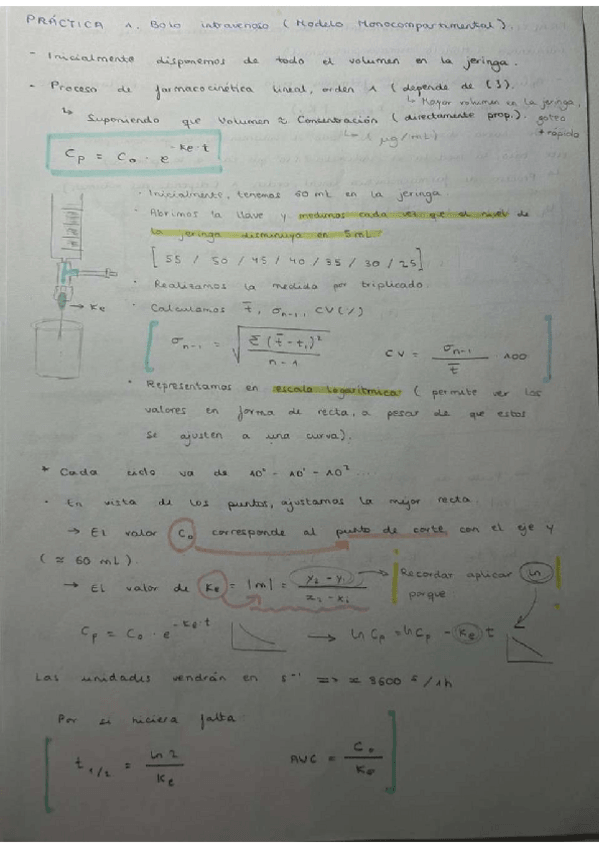 PRÁCTICA 1. Bolo intravenoso (Modelo Monocompartimental).
- Inicialmente disponemos de todo el volumen en la jeringa.
- Proceso de farmacocinética lineal, orden 1 (depende de [ ]).
↳ Mayor volumen en la jeringa, goteo + rápido
↳ Suponiendo que Volumen ≈ Concentración (directamente prop.).
↳ (μg/mL)
Cp = C0 · e^-Ke·t
· Inicialmente, tenemos 60 mL en la jeringa
· Abrimos la llave y medimos cada vez que el nivel de
la jeringa disminuya en 5 mL.
[ 55 / 50 / 45 / 40 / 35 / 30 / 25 ]
· Realizamos la medida por triplicado.
→ Ke
· Calculamos t̄, σn-1, CV(%)
σn-1 = √(Σ(t̄ - t1)² / n - 1)   CV = σn-1 / t̄ · 100
· Representamos en escala logarítmica (permite ver los
valores en forma de recta, a pesar de que estos
se ajusten a una curva).
* Cada ciclo va de 10⁰ - 10¹ - 10² ...
· En vista de los puntos, ajustamos la mejor recta.
→ El valor C0 corresponde al punto de corte con el eje y
(≈ 60 mL).
→ El valor de Ke = |m| = (y2 - y1) / (x2 - x1) → Recordar aplicar ln
porque
Cp = C0 · e^-Ke·t → ln Cp = ln Cp - Ke t
Las unidades vendrán en s⁻¹ => × 3600 s/1h
Por si hiciera falta:
t1/2 = ln 2 / Ke   AUC = C0 / Ke